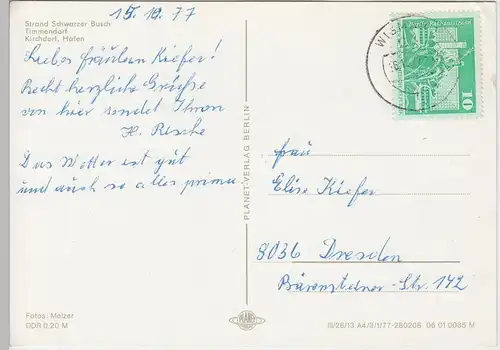 15.9.77
Strand Schwarzer Busch
Timmendorf
Kirchdorf, Hafen
Liebes Fräulein Kiefer!
Recht herzliche Grüsse
von hier sendet Ihnen
H. Rische
Das Wetter ist gut
und auch so alles prima.
PLANET-VERLAG BERLIN
WISM
10
Frau
Elise Kiefer
8036 Dresden
Bärensteiner-Str. 142
Fotos: Melzer
DDR 0,20 M
PLANET
III/28/13 A4/3/1/77-280208 06 01 0085 M